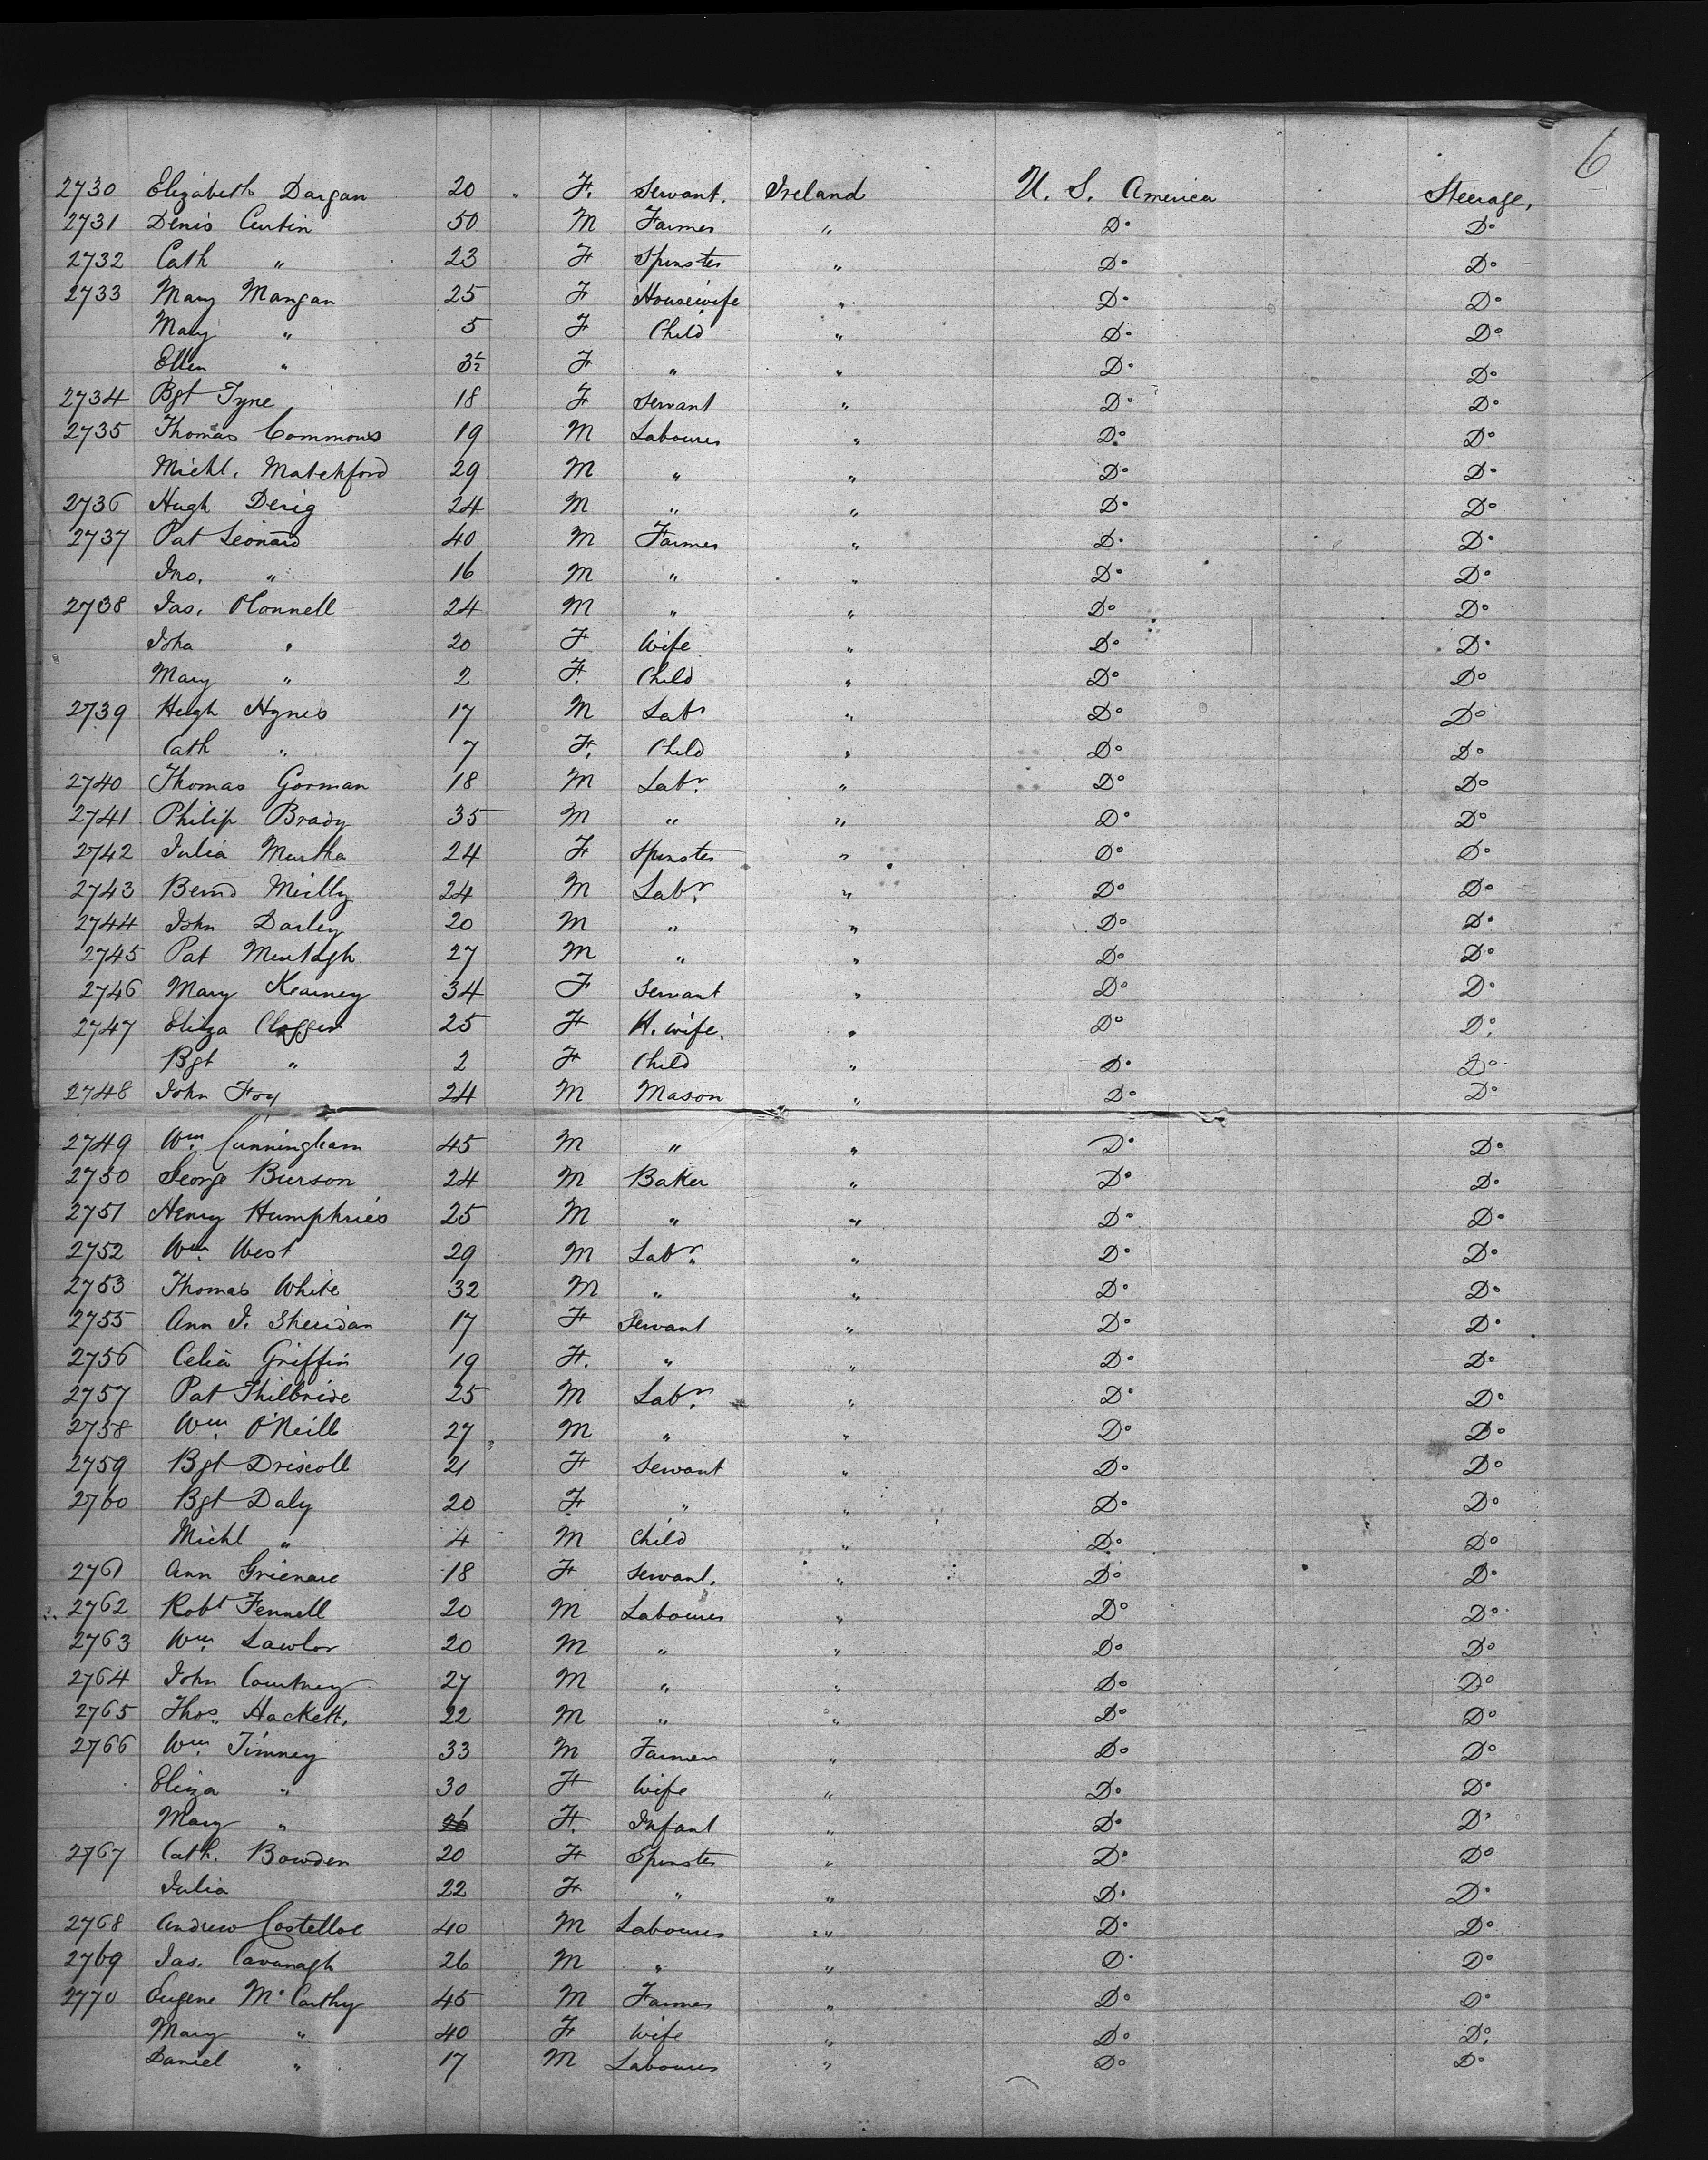 6
2730 Elizabeth Dargan 20 " F. Servant. Ireland U. S. America Steerage,
2731 Denis Curtin 50 M Farmer " Do Do
2732 Cath " 23 F Spinster " Do Do
2733 Mary Mangan 25 F Housewife " Do Do
Mary " 5 F Child " Do Do
Ellen " 3½ F " " Do Do
2734 Bgt Tyne 18 F Servant " Do Do
2735 Thomas Commons 19 M Labourer " Do Do
Michl. Matchford 29 M " " Do Do
2736 Hugh Derig 24 M " " Do Do
2737 Pat Leonard 40 M Farmer " Do Do
Jno. " 16 M " " Do Do
2738 Jas. OConnell 24 M " " Do Do
Joha " 20 F Wife " Do Do
Mary " 2 F. Child " Do Do
2739 Hugh Hynes 17 M Labr " Do Do
Cath " 7 F. Child " Do Do
2740 Thomas Gorman 18 M Labr. " Do Do
2741 Philip Brady 35 M " " Do Do
2742 Julia Murtha 24 F Spinster " Do Do
2743 Bernd Meilly 24 M Labr. " Do Do
2744 John Darley 20 M " " Do Do
2745 Pat Murtagh 27 M " " Do Do
2746 Mary Kearney 34 F Servant " Do Do
2747 Eliza 25 F H. wife. " Do Do
Bgt " 2 F Child " Do Do
2748 John Foy 24 M Mason " Do Do
2749 Wm. Cunningham 45 M " " Do Do
2750 George Burson 24 M Baker " Do Do
2751 Henry Humphries 25 M " " Do Do
2752 Wm. West 29 M Labr. " Do Do
2753 Thomas White 32 M " " Do Do
2755 Ann J. Sheridan 17 F Servant " Do Do
2756 Celia Griffin 19 F. " " Do Do
2757 Pat Philbride 25 M Labr. " Do Do
2758 Wm. O'Neill 27 M " " Do Do
2759 Bgt Driscoll 21 F Servant " Do Do
2760 Bgt Daly 20 F " " Do Do
Michl " 4 M Child " Do Do
2761 Ann 18 F Servant. " Do Do
2762 Robt Fennell 20 M Labourer " Do Do
2763 Wm. Lawlor 20 M " " Do Do
2764 John Courtney 27 M " " Do Do
2765 Thos. Hackett. 22 M " " Do Do
2766 Wm. Timney 33 M Farmer " Do Do
Eliza " 30 F Wife " Do Do
Mary " F. Infant " Do Do
2767 Cath. Bowden 20 F Spinster " Do Do
Julia 22 F " " Do Do
2768 Andrew Costelloe 40 M Labourer " Do Do
2769 Jas. Cavanagh 26 M " " Do Do
2770 Eugene McCarthy 45 M Farmer " Do Do
Mary " 40 F Wife " Do Do
Daniel " 17 M Labourer " Do Do